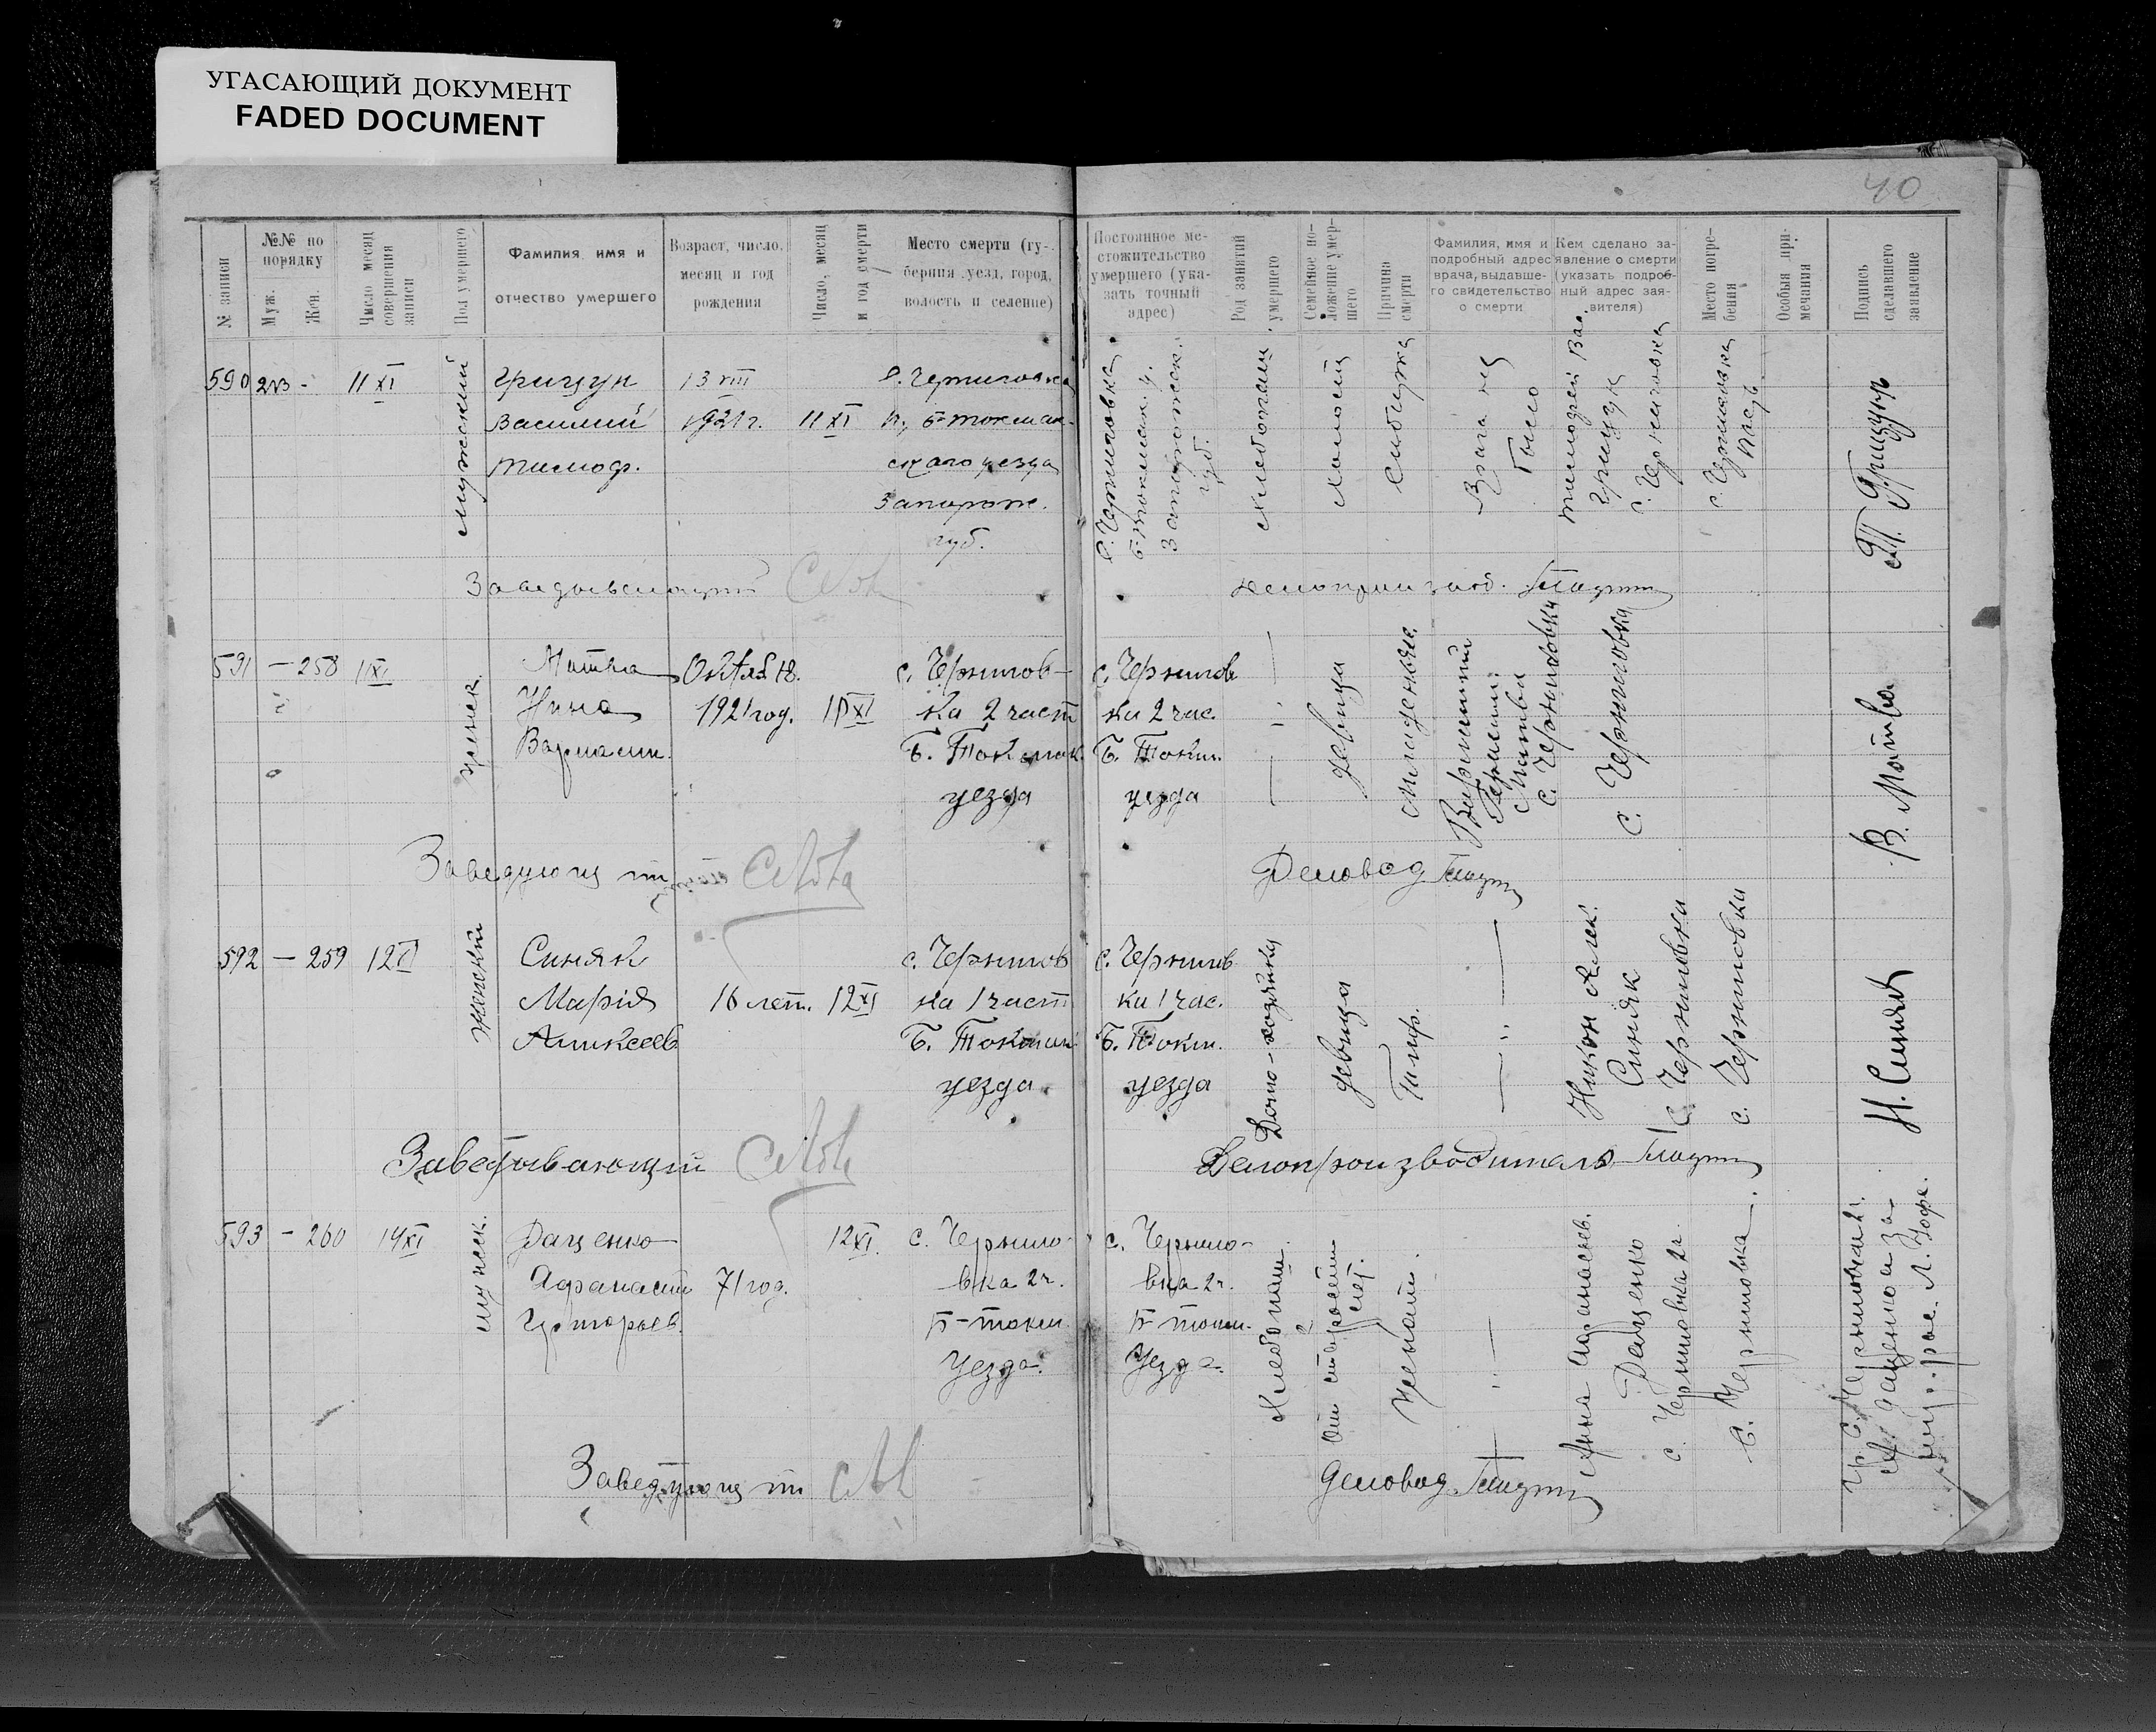 УГАСАЮЩИЙ ДОКУМЕНТ
FADED DOCUMENT
40
№ записи
№№ по порядку
Муж.
Жен.
Число месяц совершения записи
Пол умершего
Фамилия имя и
отчество умершего
Возраст, число,
месяц и год
рождения
Число, месяц
и год смерти
Место смерти (гу-
берния уезд, город,
волость и селение)
Постоянное ме-
стожительство
умершего (ука-
зать точный
адрес)
Род занятий
умершего
Семейное по-
ложение умер-
шего
Причина
смерти
Фамилия, имя и
подробный адрес
врача, выдавше-
го свидетельство
о смерти
Кем сделано за-
явление о смерти
(указать подроб-
ный адрес зая-
вителя)
Место погре-
бения
Особыя при-
мечания
Подпись
сделавшего
заявление
590
11 XI
мужский
Грицун
Василий
Тимоф.
13 VIII
1921 г.
11 XI
с. Черниговка
Б-токмак-
ского уезда
Запорож.
губ.
с. Черниговка
Б-токмак. у.
губ.
хлебопаш.
холостой
Врача не
было
Тимофей Вас.
Грицун
с. Черниговка
с. Черниговка
Т. Грицунъ
Заведывающий
591 — 258
11 XI
женск.
Матва
Нина
Октяб. 18.
1921 год.
11 XI
с. Чернигов-
ка 2 част
Б. Токмак.
уезда
с. Чернигов
ка 2 час.
Б. Токм.
уезда
— " —
девица
с. Черниговка
с. Черниговка
В. Матва
Заведующий
Деловод
592 — 259
12 XI
женский
Синяк
Марія
Алексеев.
16 лет.
12 XI
с. Чернигов
ка 1 част
Б. Токмак
уезда
с. Чернигов
ка 1 час.
Б. Токм.
уезда
Домо-хозяйка
девица
Тиф.
— " —
Никон Алек.
Синяк
с. Черниговки
с. Черниговки
Н. Синякъ
Заведывающий
Делопроизводитель
593 — 260
14 XI
мужск.
Даценко
Афанасий
Григорьев.
71 год.
12 XI.
с. Черниго-
вка 2 ч.
Б-токм.
Уезда.
с. Черниго-
вка 2 ч.
Б-токм.
Уезда.
Хлебопаш.
От старости
лет.
— " —
Анна Афанасьев.
Даценко
с. Черниговка 2 ч.
с. Черниговка.
Заведующий
Деловод